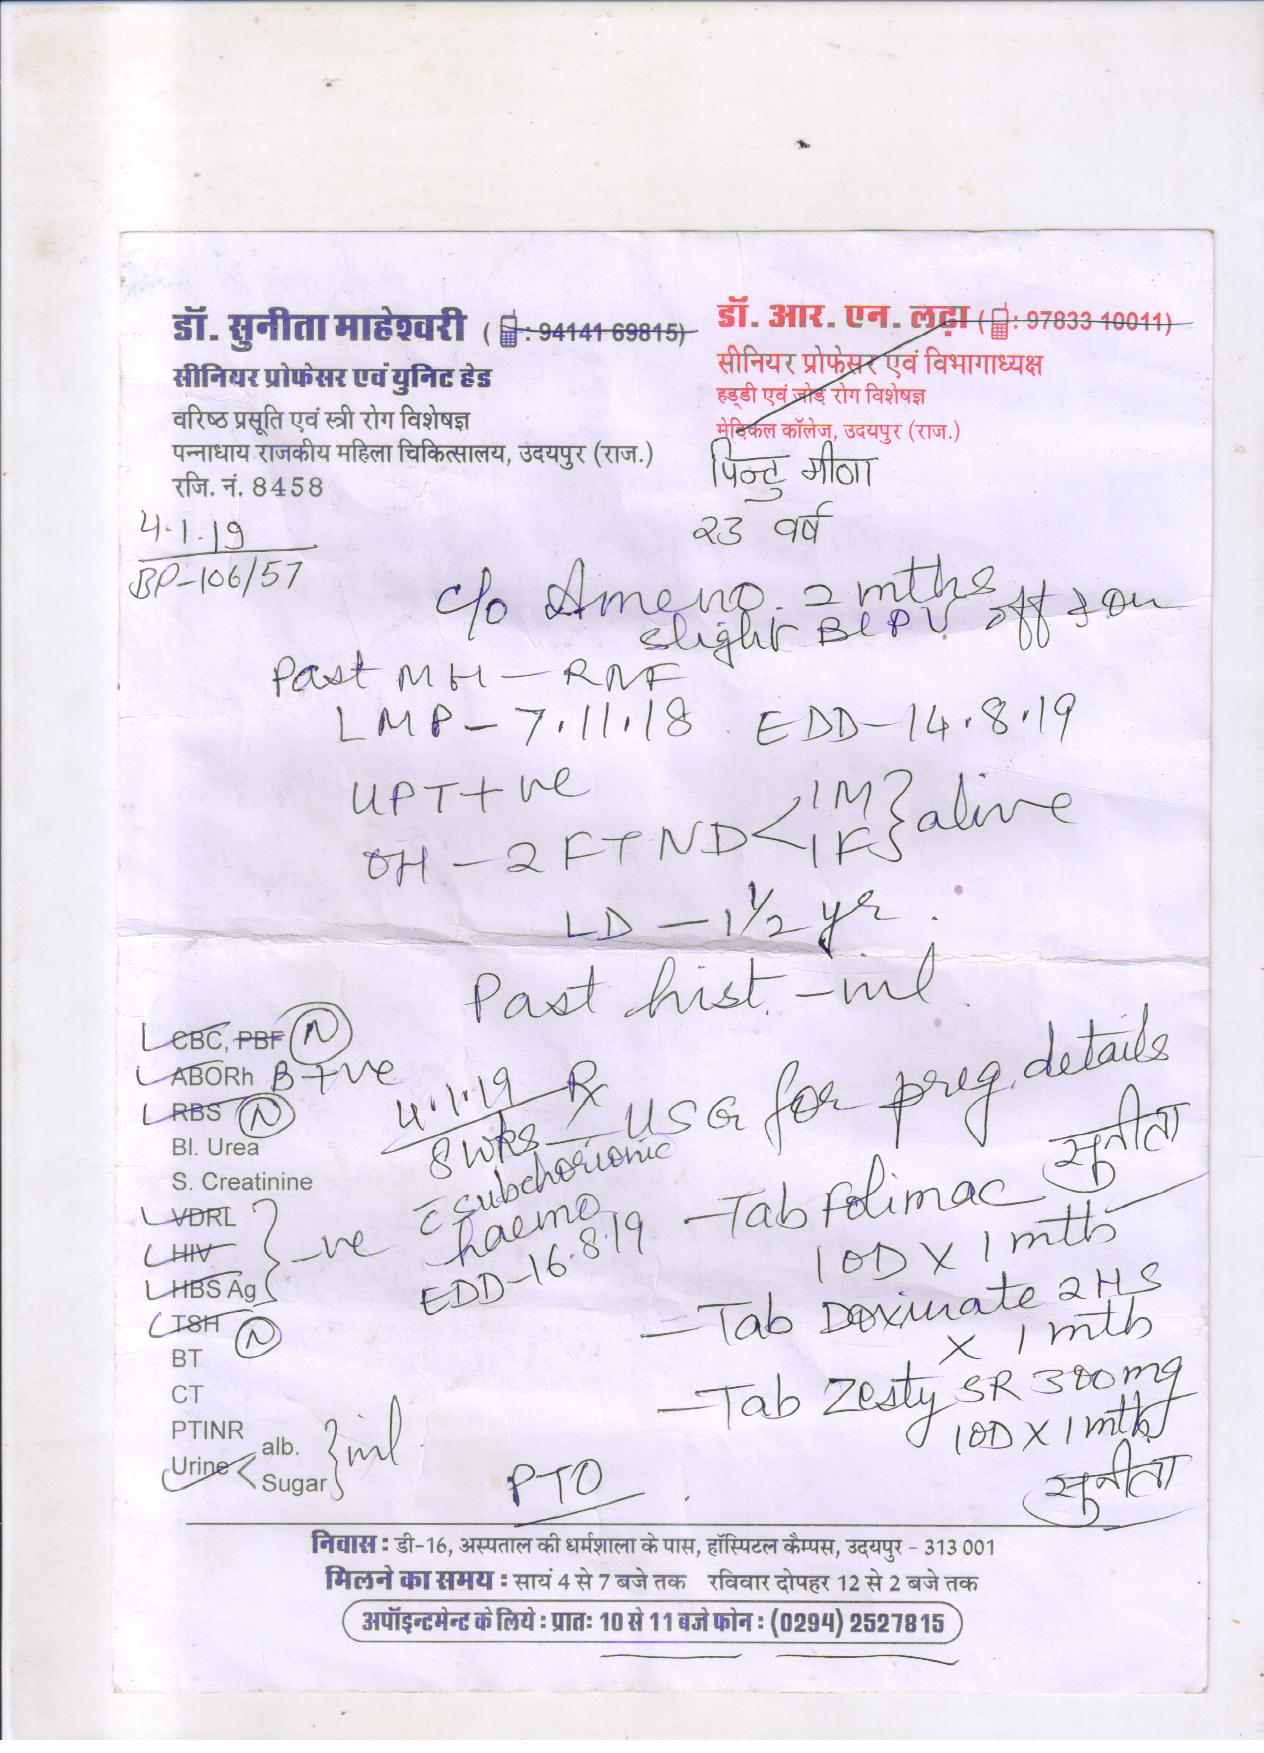 डॉ. सुनीता माहेश्वरी ( : 94141 69815)
सीनियर प्रोफेसर एवं युनिट हेड
वरिष्ठ प्रसूति एवं स्त्री रोग विशेषज्ञ
पन्नाधाय राजकीय महिला चिकित्सालय, उदयपुर (राज.)
रजि. नं. 8458
डॉ. आर. एन. लढ़ा ( : 97833 10011)
सीनियर प्रोफेसर एवं विभागाध्यक्ष
हड्डी एवं जोड़ रोग विशेषज्ञ
मेडिकल कॉलेज, उदयपुर (राज.)
पिन्टु मीणा
२३ वर्ष
4.1.19
BP-106/57
c/o Ameno. 2 mths
slight Bl PV off & on
Past MH - RNF
LMP - 7.11.18 EDD - 14.8.19
UPT +ve
OH - 2 FTND < 1M 1F } alive
LD - 1 1/2 yr.
Past hist. - nil
CBC, PBF (N)
ABORh B +ve
RBS (N)
Bl. Urea
S. Creatinine
VDRL
HIV } -ve
HBS Ag
TSH (N)
BT
CT
PTINR
Urine < alb. Sugar } nil
4.1.19
8 wks
c subchorionic
haemo
EDD - 16.8.19
Rx
- USG for preg. details
सुनीता
- Tab Folimac
1OD X 1 mth
- Tab Doxinate 2 HS
X 1 mth
- Tab Zesty SR 300mg
1OD X 1 mth
सुनीता
PTO
निवास : डी-16, अस्पताल की धर्मशाला के पास, हॉस्पिटल कैम्पस, उदयपुर - 313 001
मिलने का समय : सायं 4 से 7 बजे तक रविवार दोपहर 12 से 2 बजे तक
अपॉइन्टमेन्ट के लिये : प्रातः 10 से 11 बजे फोन : (0294) 2527815